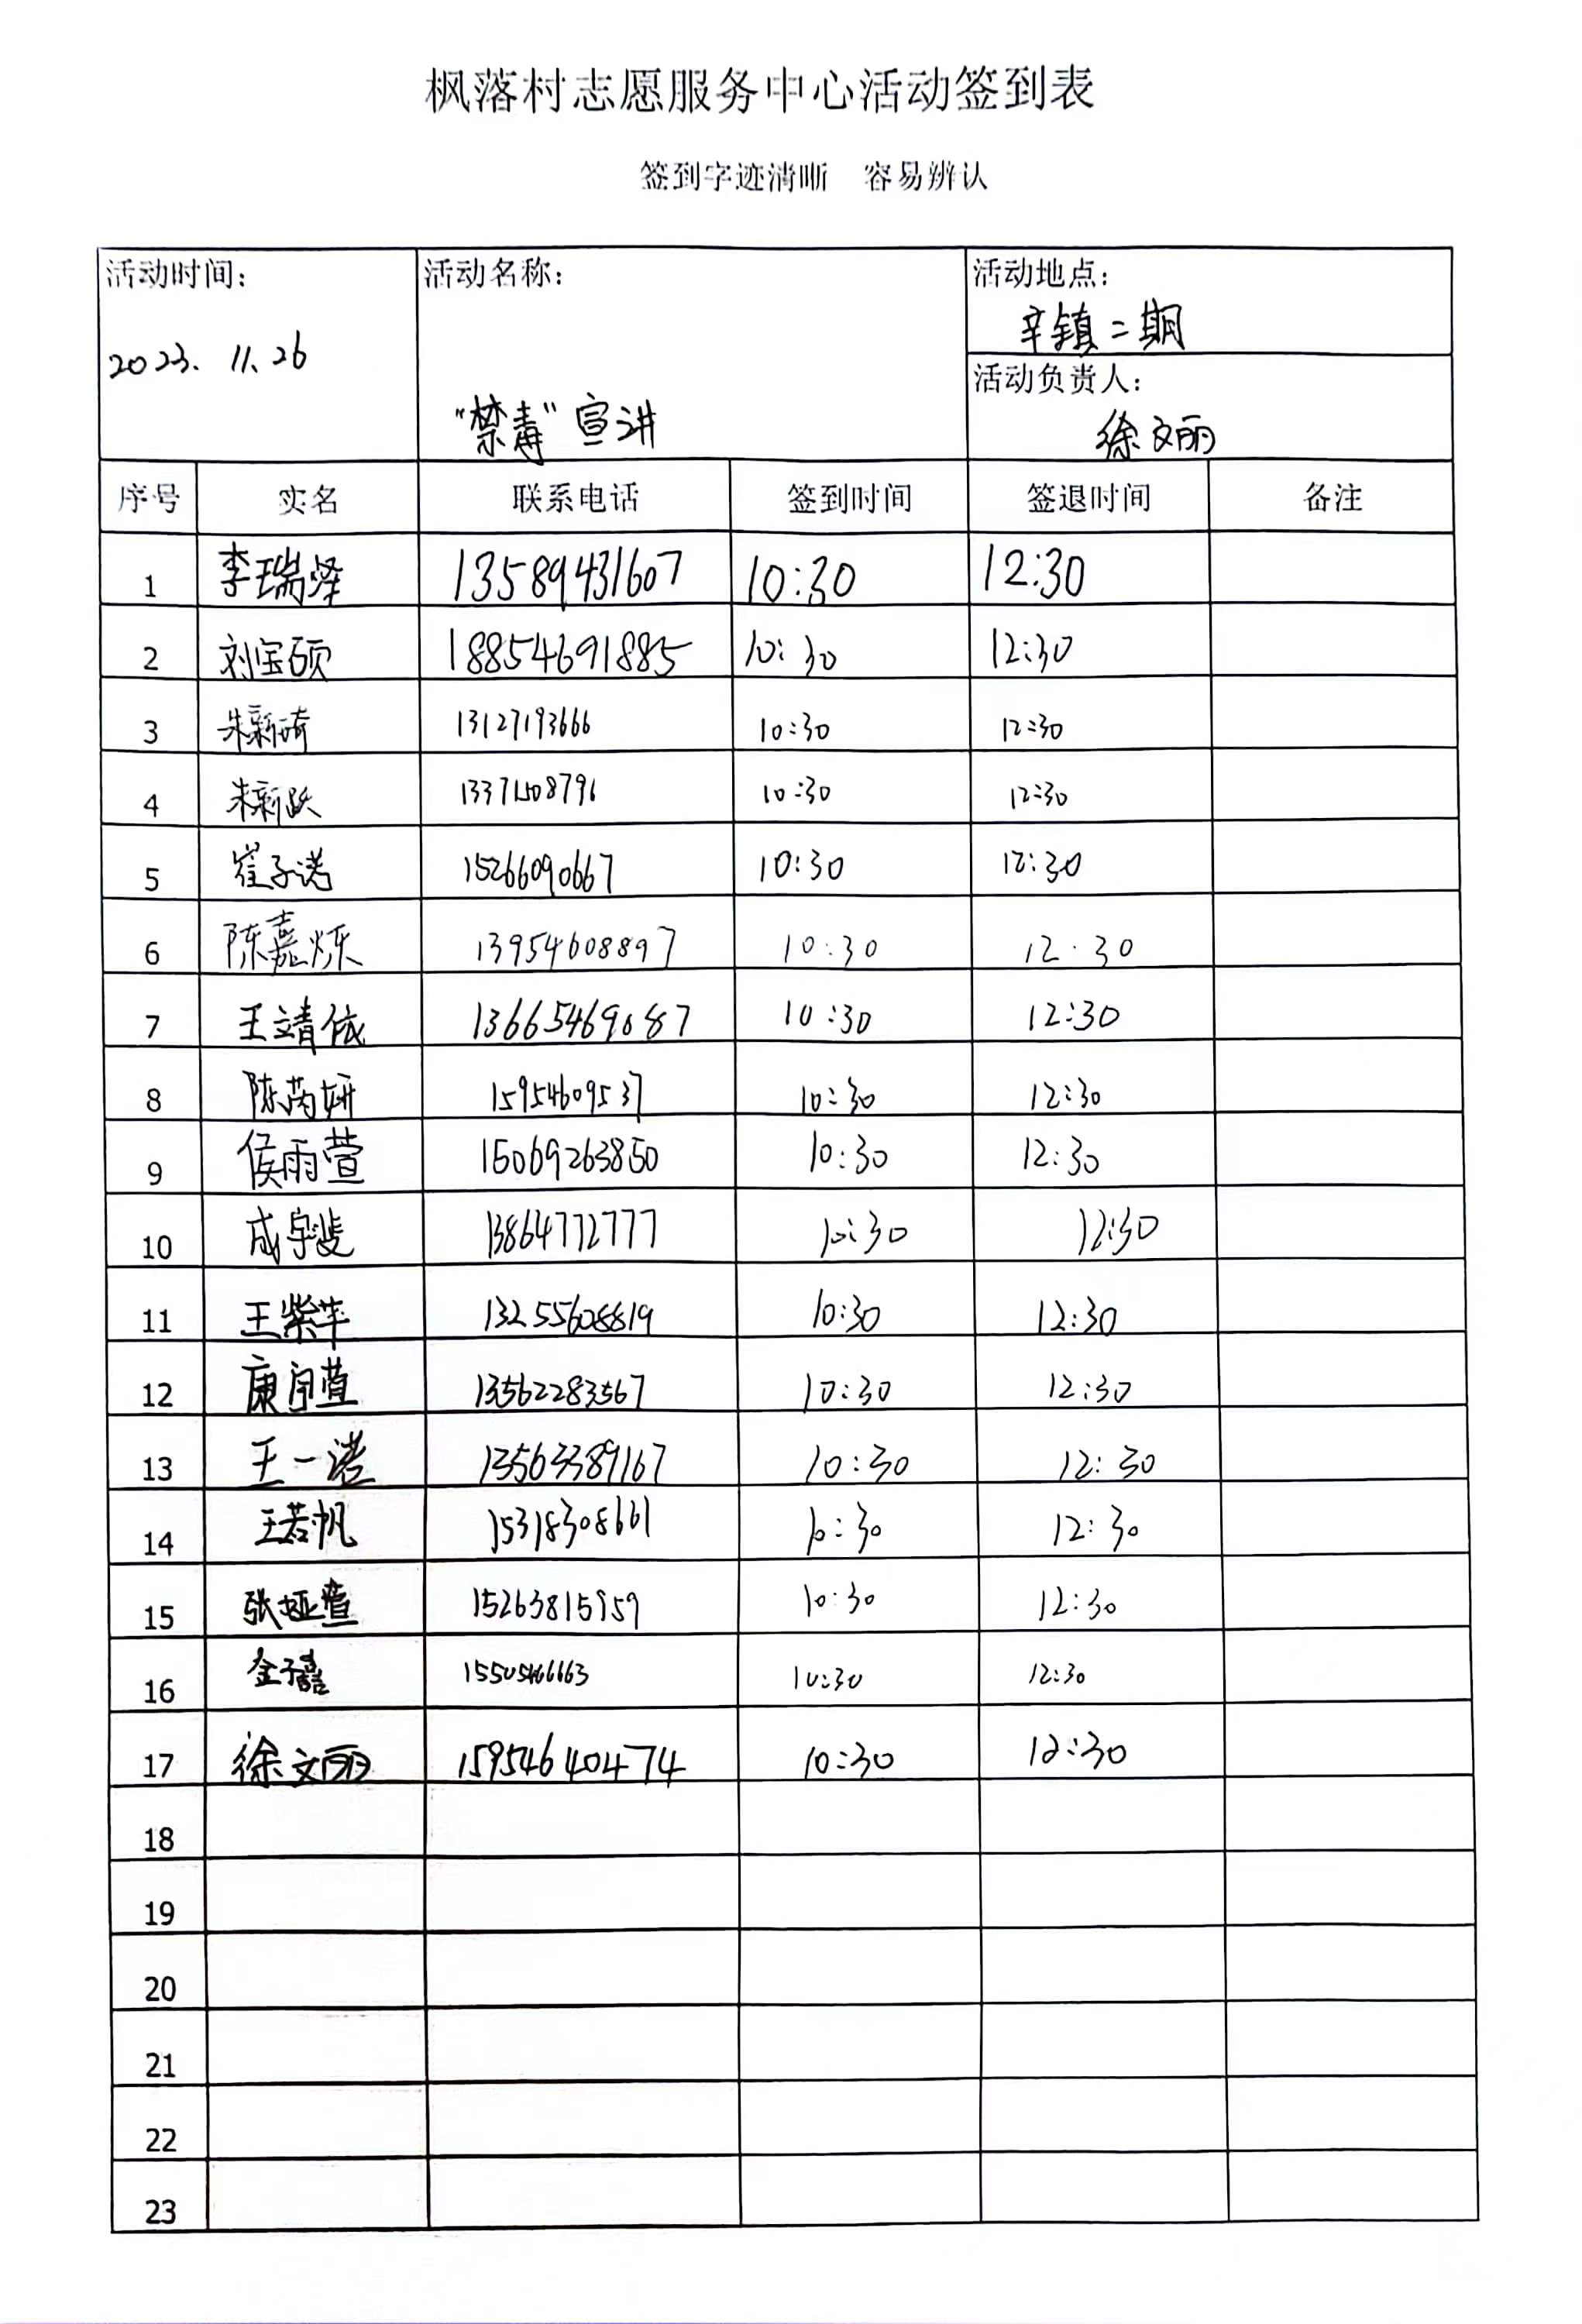 枫落村志愿服务中心活动签到表
签到字迹清晰 容易辨认
活动时间: 活动名称: 活动地点:
辛镇二期
2023. 11. 26
活动负责人:
"禁毒"宣讲 徐文丽
序号 实名 联系电话 签到时间 签退时间 备注
1 李瑞泽 13589431607 10:30 12:30
2 刘宝硕 18854691885 10:30 12:30
3 朱新琦 13127193666 10:30 12:30
4 朱新跃 13371508796 10:30 12:30
5 崔子诺 15266090667 10:30 12:30
6 陈嘉烁 13954608897 10:30 12:30
7 王靖依 13665469087 10:30 12:30
8 陈芮妍 15954609537 10:30 12:30
9 侯雨萱 15069263850 10:30 12:30
10 成宇斐 13864772777 10:30 12:30
11 王紫苹 13255608819 10:30 12:30
12 康宇萱 13562283567 10:30 12:30
13 王一诺 13563389167 10:30 12:30
14 王若帆 15318308661 10:30 12:30
15 张娅萱 15263815959 10:30 12:30
16 金子 15505466663 10:30 12:30
17 徐文丽 15954640474 10:30 12:30
18
19
20
21
22
23